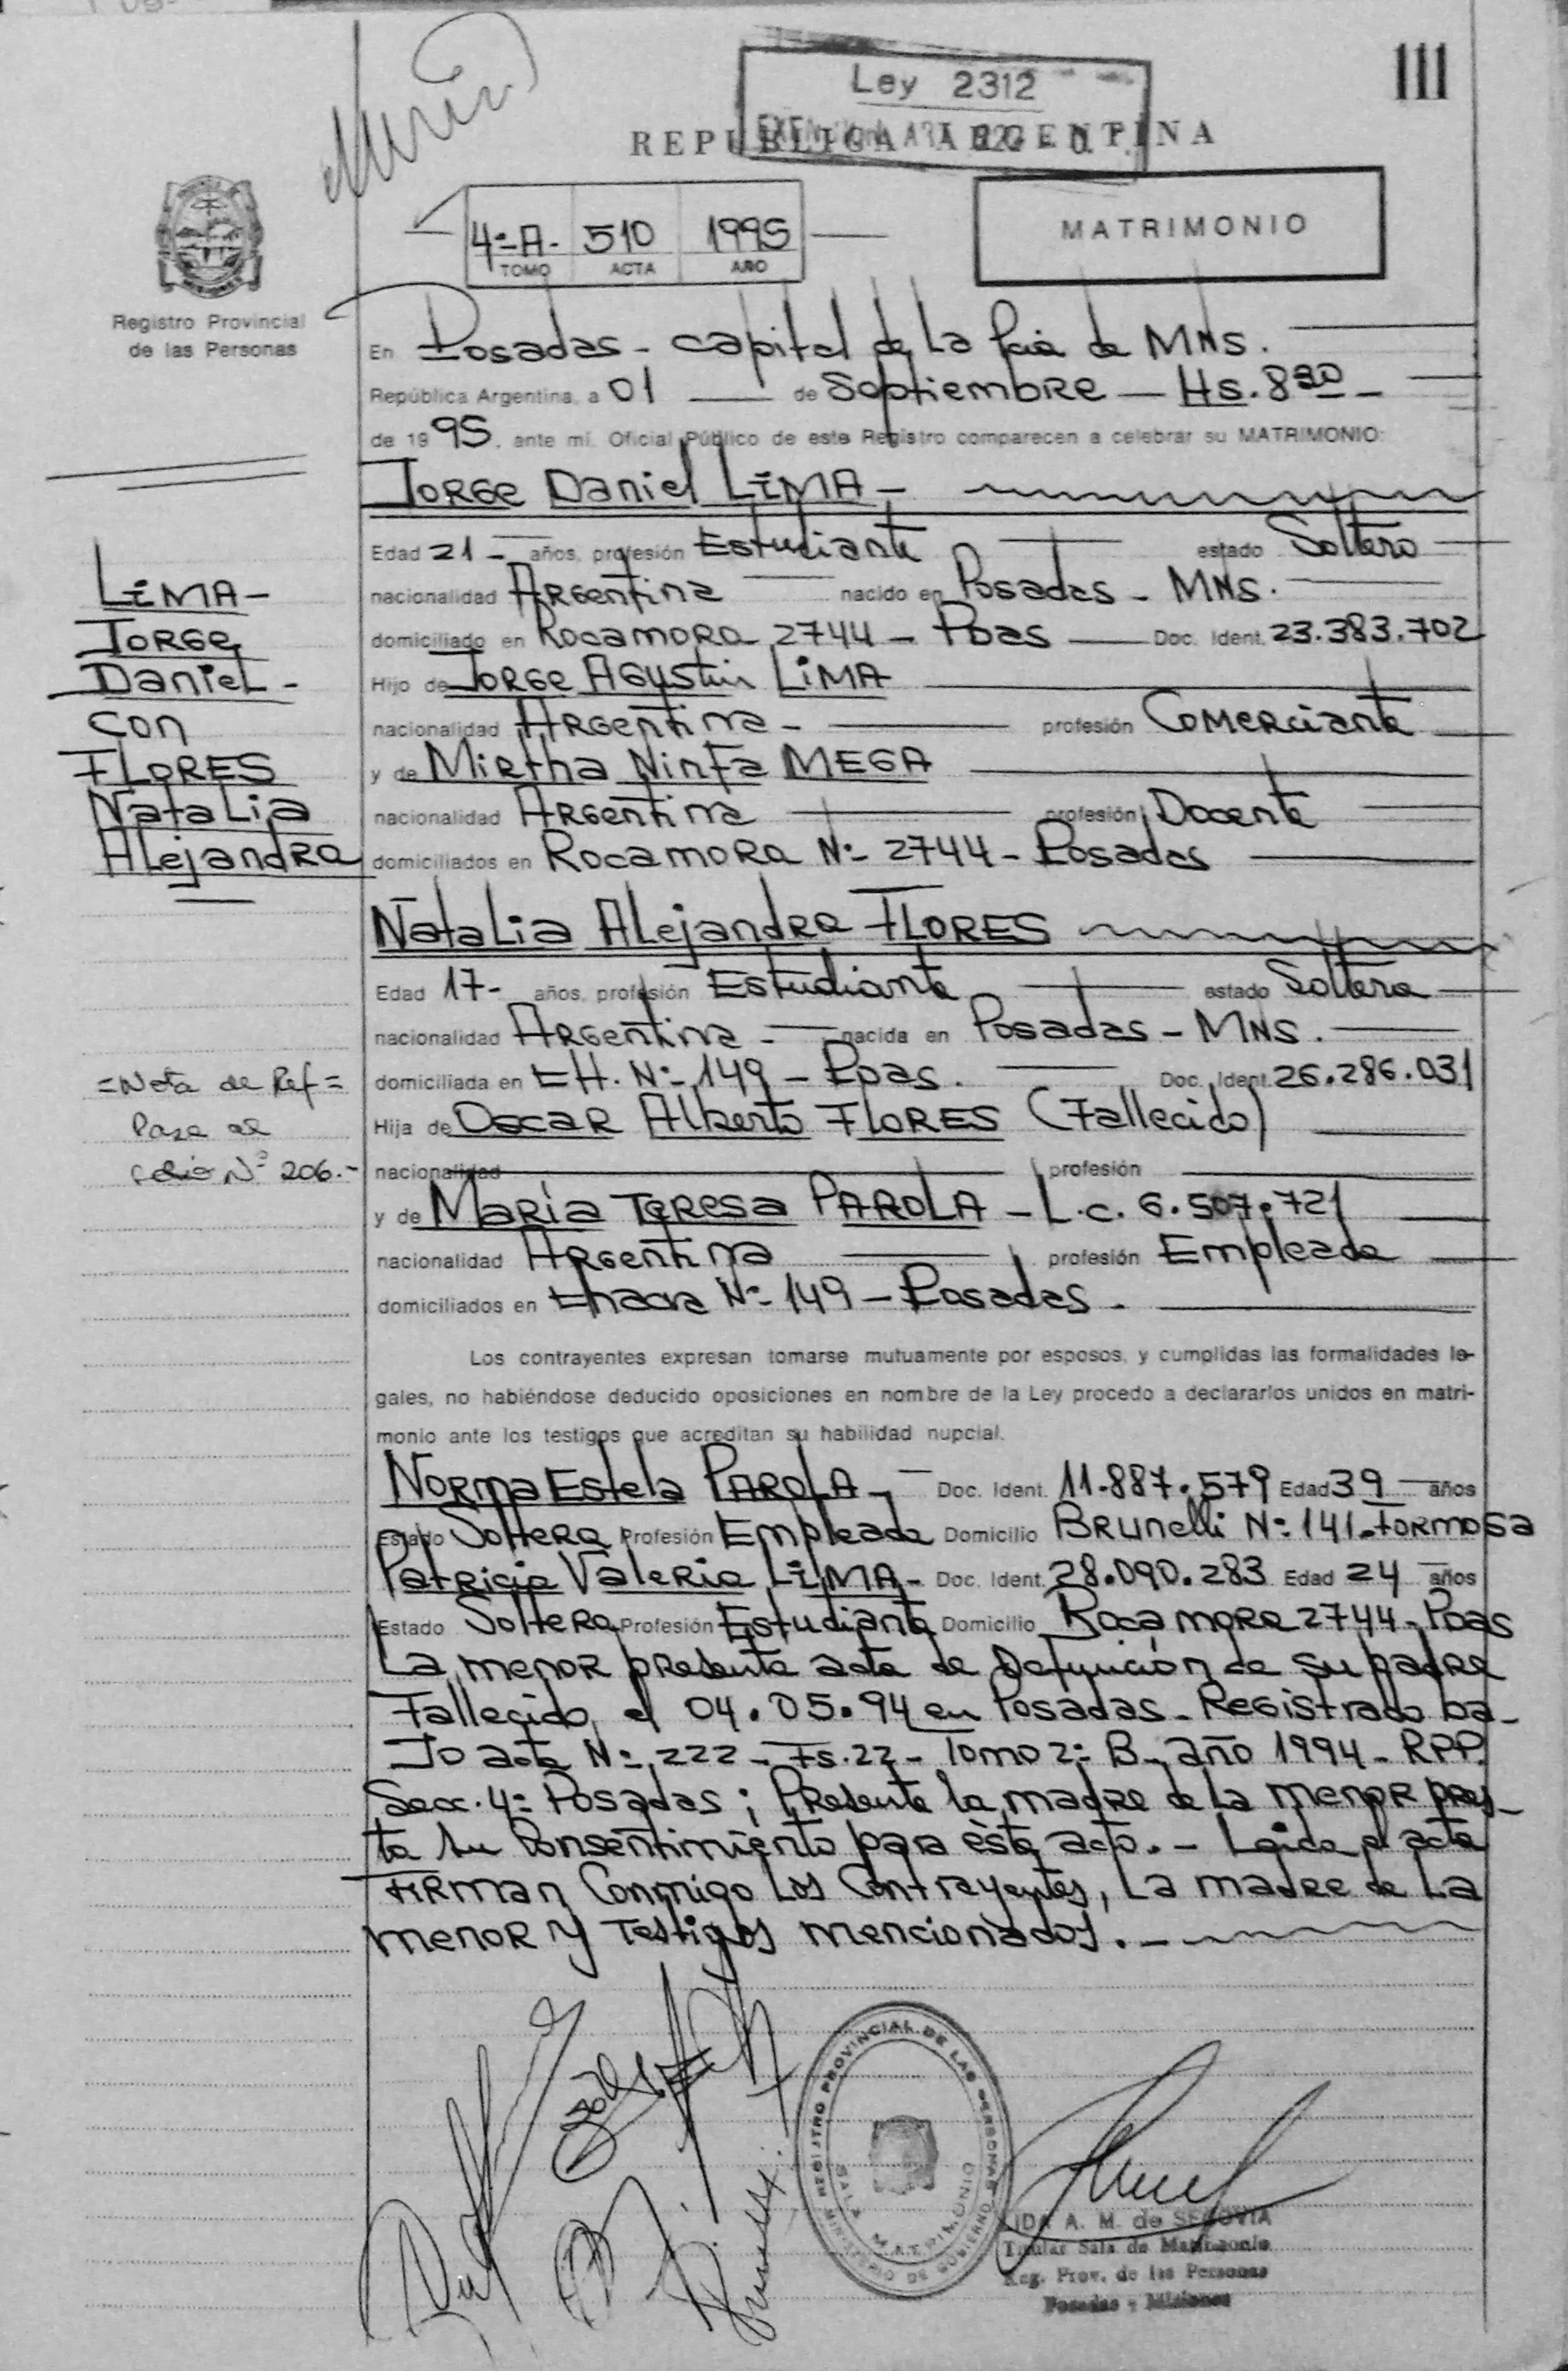 111
Ley 2312
REPUBLICA ARGENTINA
4º-A- 510 1995
TOMO ACTA AÑO
MATRIMONIO
Registro Provincial
de las Personas
En Posadas - capital de La Pcia de MNS.
República Argentina, a 01 de Septiembre — Hs. 8 30 -
de 1995, ante mí. Oficial Público de este Registro comparecen a celebrar su MATRIMONIO:
Jorge Daniel LiMA -
Edad 21 - años, profesión Estudiante estado Soltero
nacionalidad Argentina nacido en Posadas - MNS.
domiciliado en Rocamora 2744 - Pdas Doc. Ident. 23.383.702
Hijo de Jorge Agustin LiMA
nacionalidad Argentina - profesión Comerciante
y de Mirtha Ninfa MEGA
nacionalidad Argentina profesión Docente
domiciliados en Rocamora Nº- 2744 - Posadas
LiMA -
Jorge
Daniel -
con
FLORES
Natalia
Alejandra
Natalia Alejandra FLORES
Edad 17 - años, profesión Estudiante estado Soltera
nacionalidad Argentina - nacida en Posadas - MNS.
domiciliada en CH. Nº- 149 - Pdas. Doc. Ident. 26.286.031
Hija de Oscar Alberto FLORES (Fallecido)
nacionalidad profesión
y de Maria Teresa PAROLA - L.c. 6.507.721
nacionalidad Argentina profesión Empleada
domiciliados en Chacra Nº- 149 - Posadas.
= Nota de Ref =
Pasa al
folio Nº 206.-
Los contrayentes expresan tomarse mutuamente por esposos, y cumplidas las formalidades le-
gales, no habiéndose deducido oposiciones en nombre de la Ley procedo a declararlos unidos en matri-
monio ante los testigos que acreditan su habilidad nupcial.
Norma Estela PAROLA - Doc. Ident. 11.887.579 Edad 39 años
Estado Soltera Profesión Empleada Domicilio Brunelli Nº 141. Formosa
Patricia Valeria LiMA - Doc. Ident. 28.090.283 Edad 24 años
Estado Soltera Profesión Estudiante Domicilio Rocamora 2744 - Pdas
La menor presenta acta de Defunción de su padre
Fallecido el 04.05.94 en Posadas - Registrado ba-
jo acta Nº- 222 - Fs. 22 - Tomo 2º B - año 1994 - RPP.
Secc. 4º Posadas ; Presente la madre de la menor pres-
ta su Consentimiento para éste acto. - Leida el acta
Firman Conmigo Los Contrayentes, La madre de La
menor y Testigos mencionados. -
REGISTRO PROVINCIAL DE LAS PERSONAS
MINISTERIO DE GOBIERNO
SALA MATRIMONIO
LIDA A. M. de SEGOVIA
Titular Sala de Matrimonio
Reg. Prov. de las Personas
Posadas - Misiones